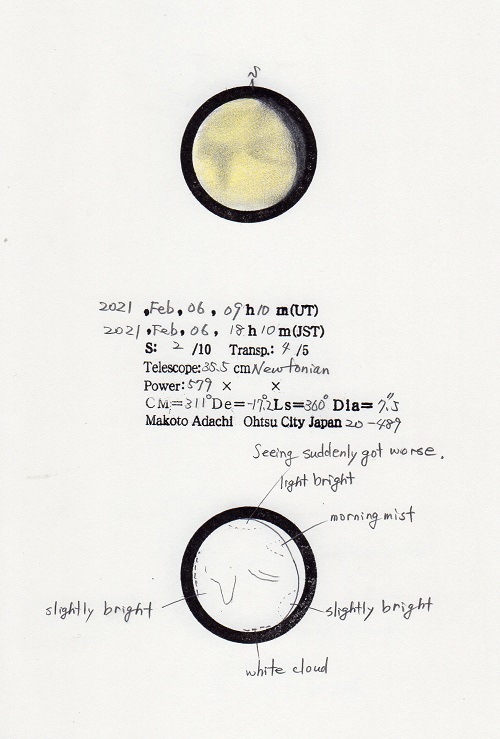 S
2021 , Feb, 06, 09 h 10 m(UT)
2021 , Feb, 06, 18 h 10 m(JST)
S: 2 /10 Transp.: 4 /5
Telescope: 35.5 cm Newtonian
Power: 579 × ×
CM=311° De=-17.2 Ls=360° Dia= 7.5"
Makoto Adachi Ohtsu City Japan 20-489
Seeing suddenly got worse.
light bright
morning mist
slightly bright
slightly bright
white cloud